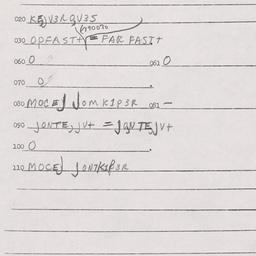 020 KEJV3RQV35
030 OPFAST+ = FAR FASIT
060 0 061 0
070 0
080 MOCEJ JOMK1P3R 081 -
090 JONTEJJV+ = JQNTEJV+
100 0
110 MOCEJ JON7K1P3R